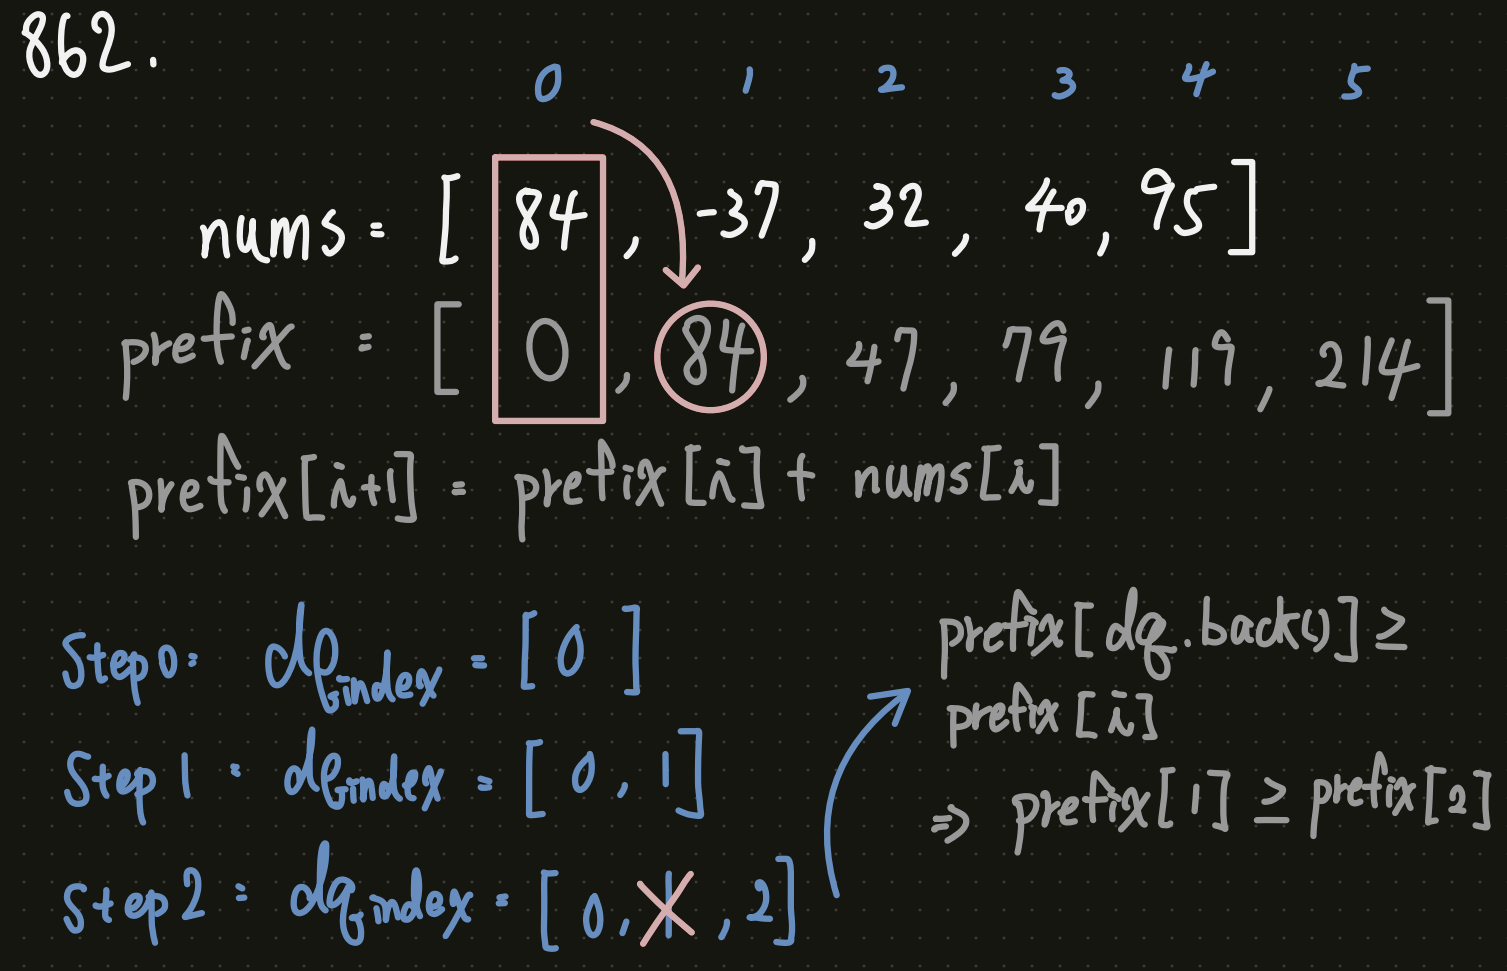 862.
0 1 2 3 4 5
nums = [ 84 , -37 , 32 , 40 , 95 ]
prefix = [ 0 , 84 , 47 , 79 , 119 , 214 ]
prefix[i+1] = prefix[i] + nums[i]
Step 0: dq_index = [ 0 ]
Step 1 : dq_index = [ 0 , 1 ]
Step 2 : dq_index = [ 0 , 1 , 2 ]
prefix[dq.back()] ≥
prefix[i]
⇒ prefix[1] ≥ prefix[2]